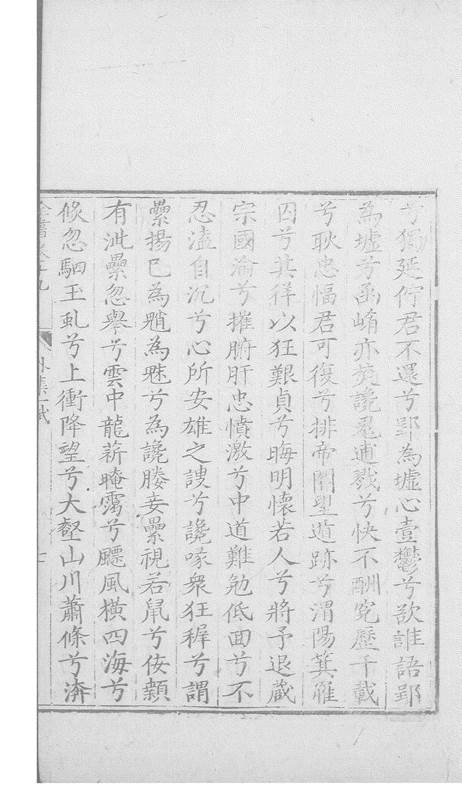 兮獨延佇君不還兮郢為墟心壹鬱兮欲誰語郢
為墟兮函崤亦焚讒鬼逋戮兮快不酬冤歷千載
兮耿忠愊君可復兮排帝閽望遁跡兮渭陽箕罹
囚兮其佯以狂艱貞兮晦明懷若人兮將予退藏
宗國淪兮摧腑肝忠憤激兮中道難勉低回兮不
忍溘自沉兮心所安雄之諛兮讒喙衆狂穉兮謂
纍揚已為魈為魅兮為讒媵妾纍視若鼠兮佞顙
有泚纍忽舉兮雲中龍旂晻靄兮飄風橫四海兮
倏忽駟玉虬兮上衝降望兮大壑山川蕭條兮漭
全書卷十九 外集一 賦